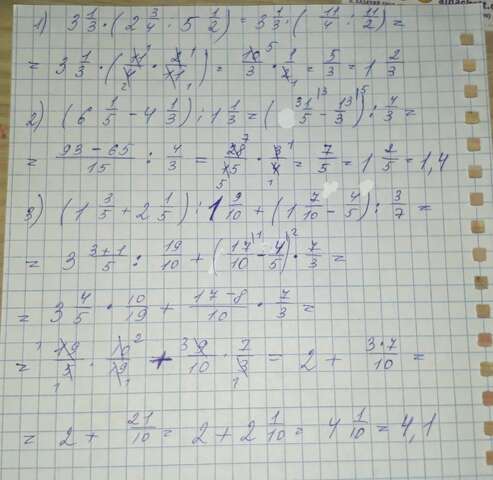 1) 3 1/3 · (2 3/4 : 5 1/2) = 3 1/3 · (11/4 : 11/2) =
= 3 1/3 · (11/4 · 2/11) = 10/3 · 1/2 = 5/3 = 1 2/3
2) (6 1/5 - 4 1/3) : 1 1/3 = (31/5 - 13/3) : 4/3 =
= 93 - 65/15 : 4/3 = 28/15 · 3/4 = 7/5 = 1 2/5 = 1,4
3) (1 3/5 + 2 1/5) : 1 9/10 + (1 7/10 - 4/5) : 3/7 =
= 3 3+1/5 : 19/10 + (17/10 - 4/5) · 7/3 =
= 3 4/5 · 10/19 + 17-8/10 · 7/3 =
= 19/5 · 10/19 + 9/10 · 7/3 = 2 + 3·7/10 =
= 2 + 21/10 = 2 + 2 1/10 = 4 1/10 = 4,1